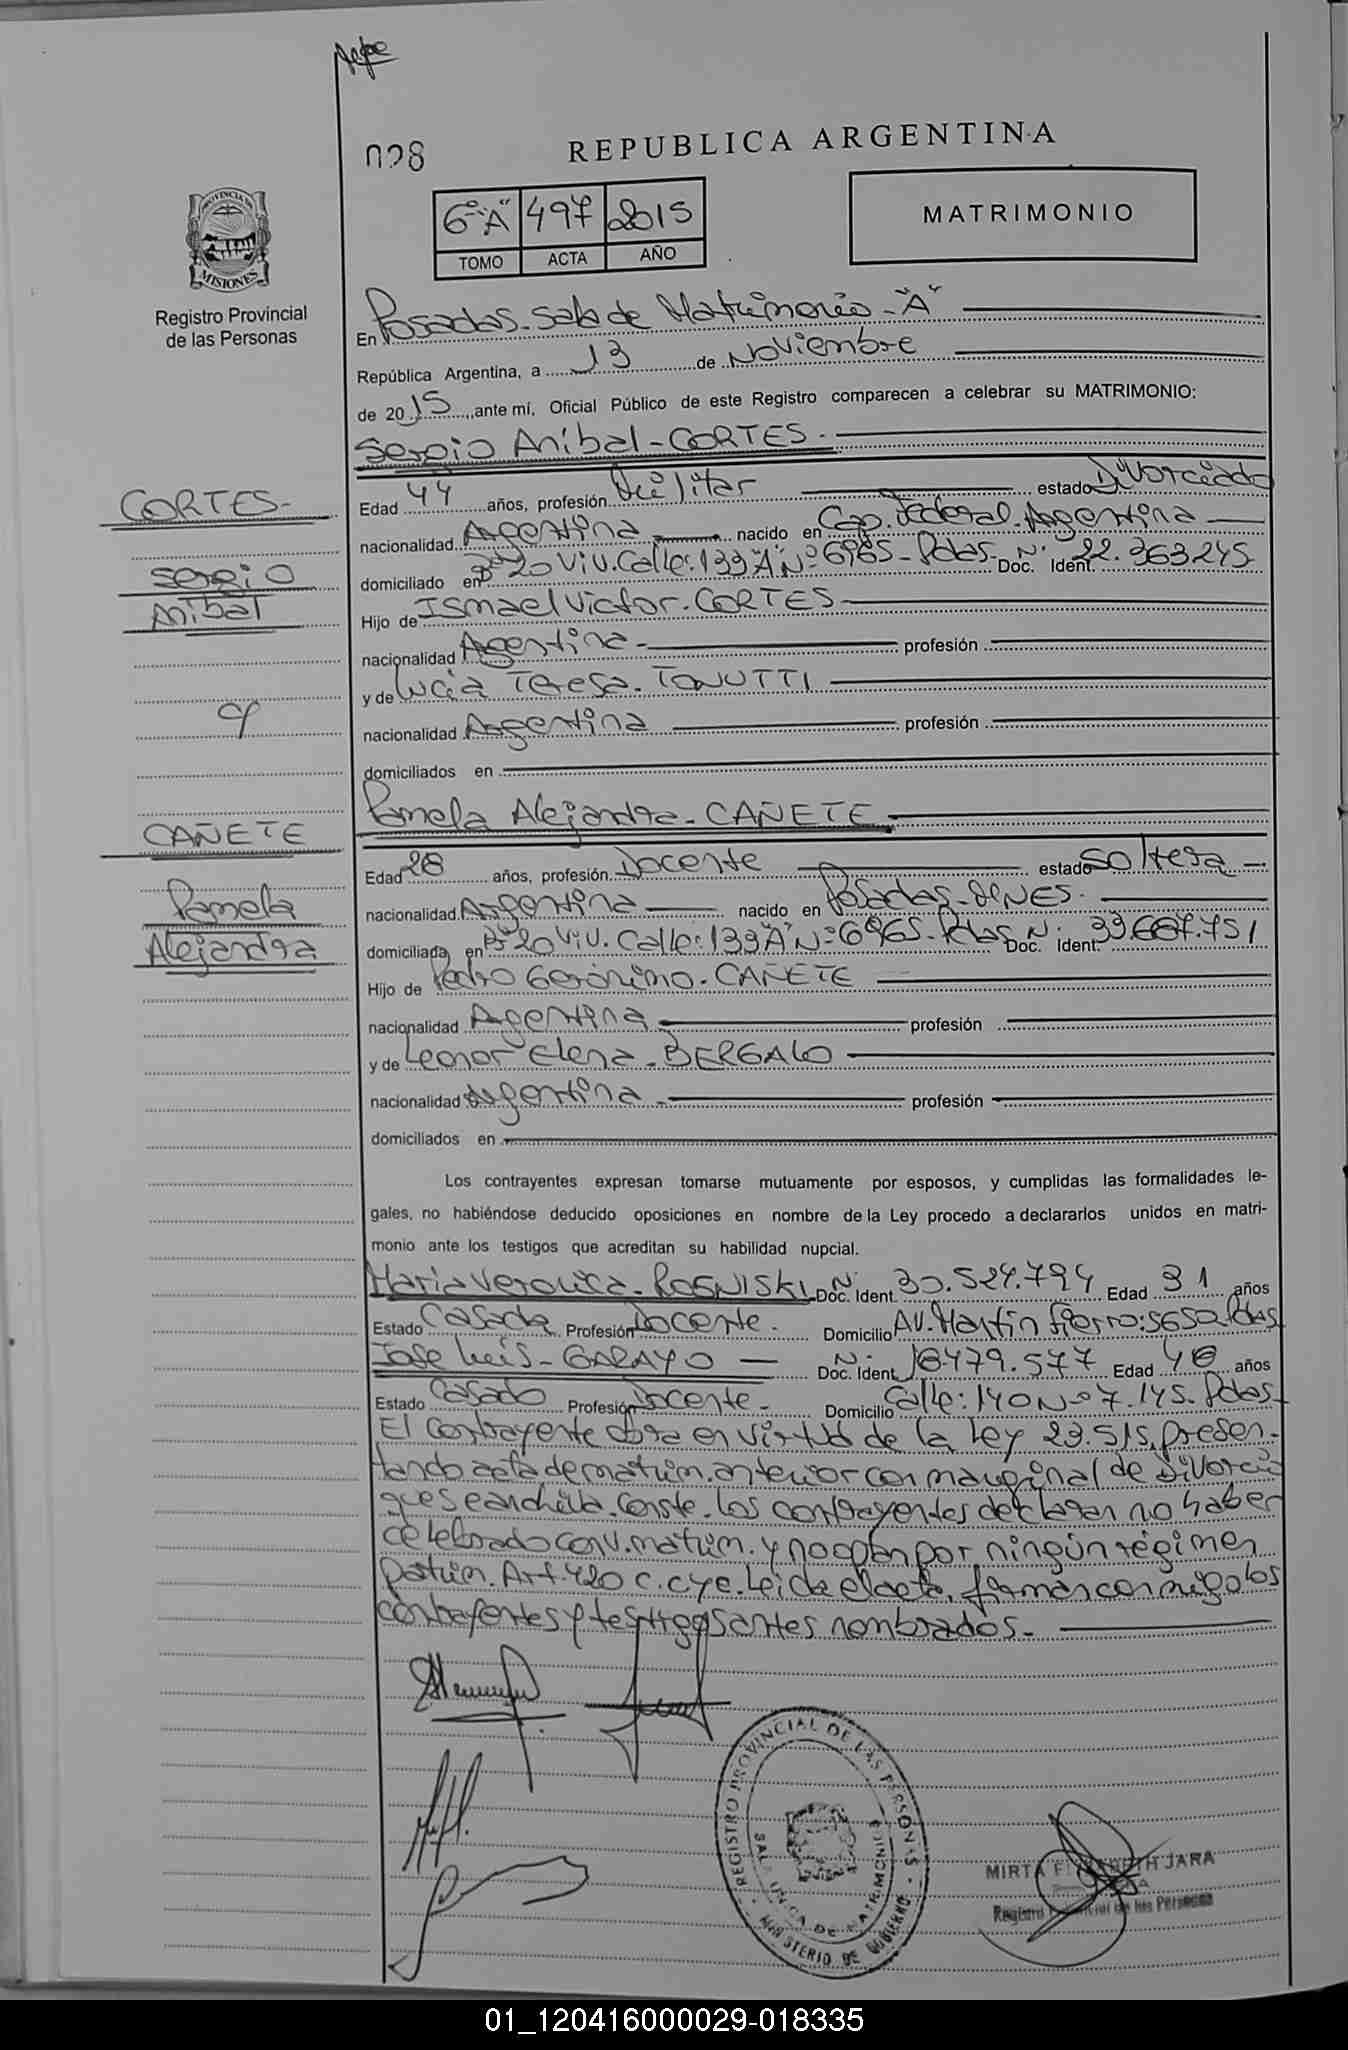 028
REPUBLICA ARGENTINA
6º "A" 497 2015
TOMO ACTA AÑO
MATRIMONIO
PROVINCIA DE
MISIONES
Registro Provincial
de las Personas
En Posadas. Sala de Matrimonio - "A"
República Argentina, a 13 de Noviembre
de 2015, ante mí, Oficial Público de este Registro comparecen a celebrar su MATRIMONIO:
Sergio Aníbal - CORTES -
CORTES -
Sergio
Anibal
Edad 44 años, profesión Militar estado Divorciado
nacionalidad Argentina nacido en Cap. Federal. Argentina
domiciliado en Bº 20 Viv. Calle: 133 "A" Nº 6965 - Pdas - Doc. Ident. Nº 22.363.245
Hijo de Ismael Victor. CORTES
nacionalidad Argentina - profesión
y de Lucia Teresa. TONUTTI
nacionalidad Argentina profesión
domiciliados en
Pamela Alejandra - CAÑETE
c/
CAÑETE
Pamela
Alejandra
Edad 28 años, profesión Docente estado Soltera -
nacionalidad Argentina nacido en Posadas - MNES.
domiciliada en Bº 20 Viv. Calle: 133 "A" Nº 6965 - Pdas Doc. Ident. Nº 33.687.751
Hijo de Pedro Gerónimo. CAÑETE
nacionalidad Argentina profesión
y de Leonor Elena - BERGALO
nacionalidad Argentina - profesión
domiciliados en
Los contrayentes expresan tomarse mutuamente por esposos, y cumplidas las formalidades le-
gales, no habiéndose deducido oposiciones en nombre de la Ley procedo a declararlos unidos en matri-
monio ante los testigos que acreditan su habilidad nupcial.
Maria Veronica - ROSNISKI Doc. Ident. Nº 30.524.794 Edad 31 años
Estado Casada Profesión Docente. Domicilio Av. Martín Fierro: 5650 Pdas
Jose Luis - GARAYO - Doc. Ident. Nº 18.479.577 Edad 48 años
Estado Casado Profesión Docente - Domicilio Calle: 140 Nº 7.145. Pdas.
El contrayente obra en virtud de la Ley 23.515, presen-
tando acta de matrim. anterior con marginal de Divorcio
que se archiva. Conste. Los contrayentes declaran no haber
celebrado conv. matrim. y no optan por ningún régimen
patrim. Art. 420 C. C y C. Leida el acta, firman conmigo los
contrayentes y testigos antes nombrados -
REGISTRO PROVINCIAL DE LAS PERSONAS
SALA UNICA DE MATRIMONIOS
MINISTERIO DE GOBIERNO
MIRTA ELIZABETH JARA
Registro Provincial de las Personas
01_120416000029-018335